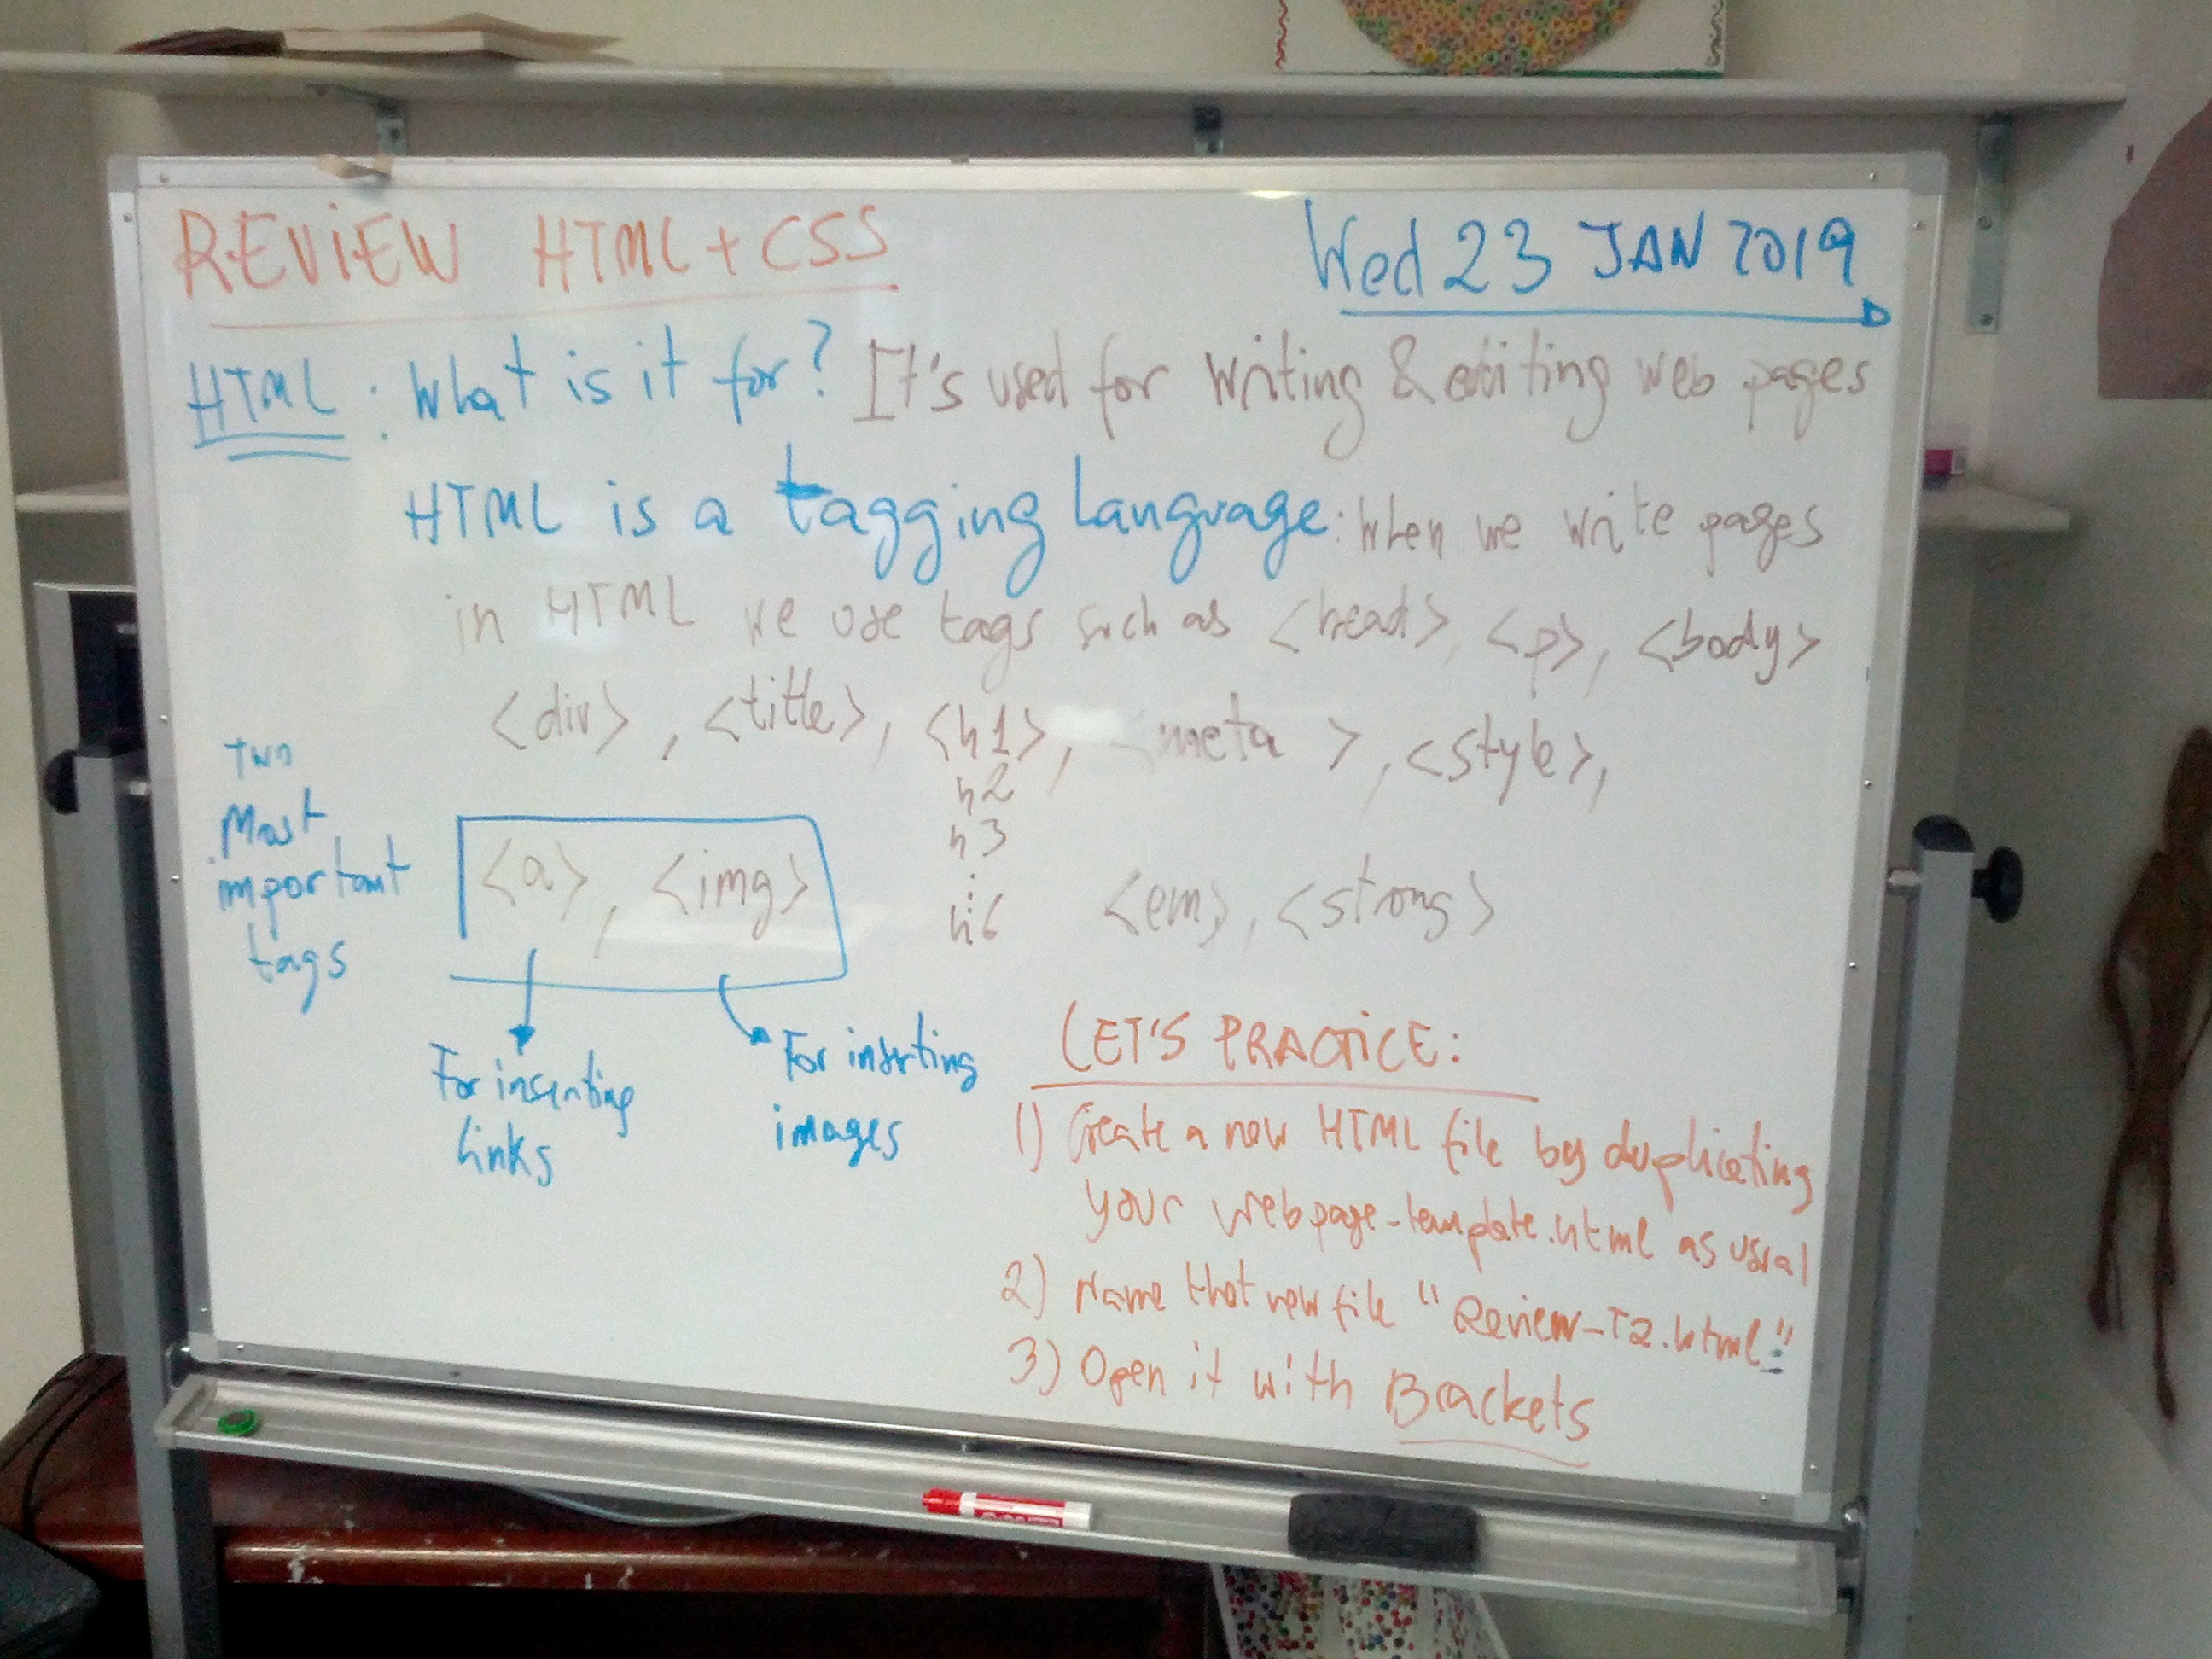 REVIEW HTML + CSS
Wed 23 JAN 2019
HTML : What is it for? It's used for writing & editing web pages
HTML is a tagging language: when we write pages
in HTML we use tags such as <head>, <p>, <body>
<div>, <title>, <h1>, <meta >, <style>,
h2
h3
:
h6
Two
Most
important
tags
<a>, <img>
<em>, <strong>
For inserting
links
For inserting
images
LET'S PRACTICE:
1) Create a new HTML file by duplicating
your webpage-template.html as usual
2) Name that new file "Review-T2.html"
3) Open it with Brackets